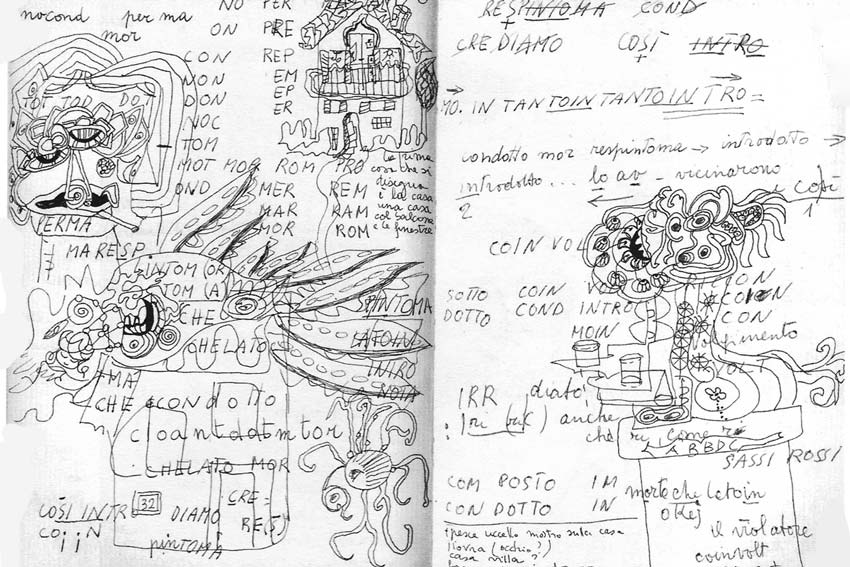 NO PER
nocond per ma
mor
ON PRE
CON REP
NON EM
EP
DON ER
NOC
TOT TOD DOT
TOM
MOT MOR ROM PRO
OND MER REM
MAR RAM
MOR ROM
la prima
cosa che si
disegna
è la casa
una casa
col balcone
e le finestre
VERMA
MARESP
SINTOM (OR)
TOM (A)
CHE
CHELATO
SPINTOMA
LATOIN
INTRO
NOIA
IMA
CHE CONDOTTO
cloantdatmtor
CHELATO MOR
COSÌ INTRO 32 DIAMO
CRE =
RE(S)
CO i i N
pINTOMA
RESPINTOMA COND
CREDIAMO COSÌ INTRO
MO. IN TANTOINTANTOINTRO =
condotto mor respintoma → introdotto →
introdotto ... lo av - vicinarono
e così
2 1
COIN VOL
SOTTO COIN VO
DOTTO COND INTRO
MOIN
CON
CON
volpimento
VOLT
IRR diatò
Iri (bil) anche
che ri come
ABBDC
SASSI ROSSI
COM POSTO IM
CONDOTTO IN
morto che latoin
okej
il violatore
coinvolt
pesce uccello mostro sulla casa
(occhio?)
casa villa?